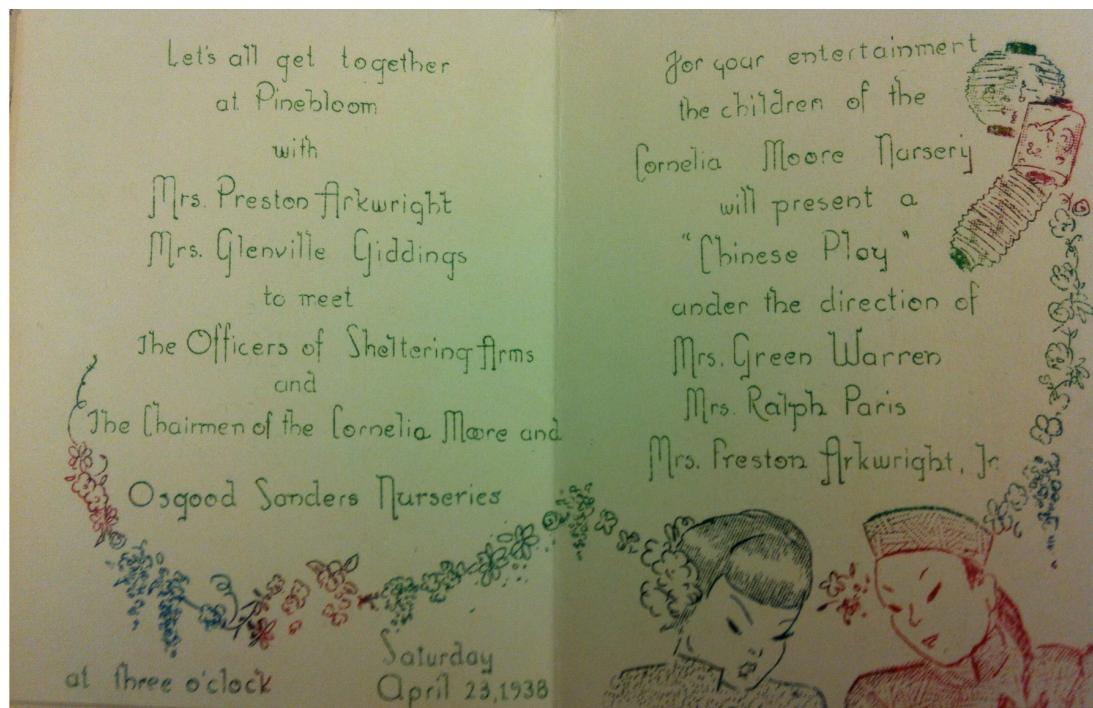 Let's all get together
at Pinebloom
with
Mrs. Preston Arkwright
Mrs. Glenville Giddings
to meet
The Officers of Sheltering Arms
and
The Chairmen of the Cornelia Moore and
Osgood Sanders Nurseries
at three o'clock
Saturday
April 23, 1938
For your entertainment
the children of the
Cornelia Moore Nursery
will present a
"Chinese Play"
under the direction of
Mrs. Green Warren
Mrs. Ralph Paris
Mrs. Preston Arkwright, Jr.